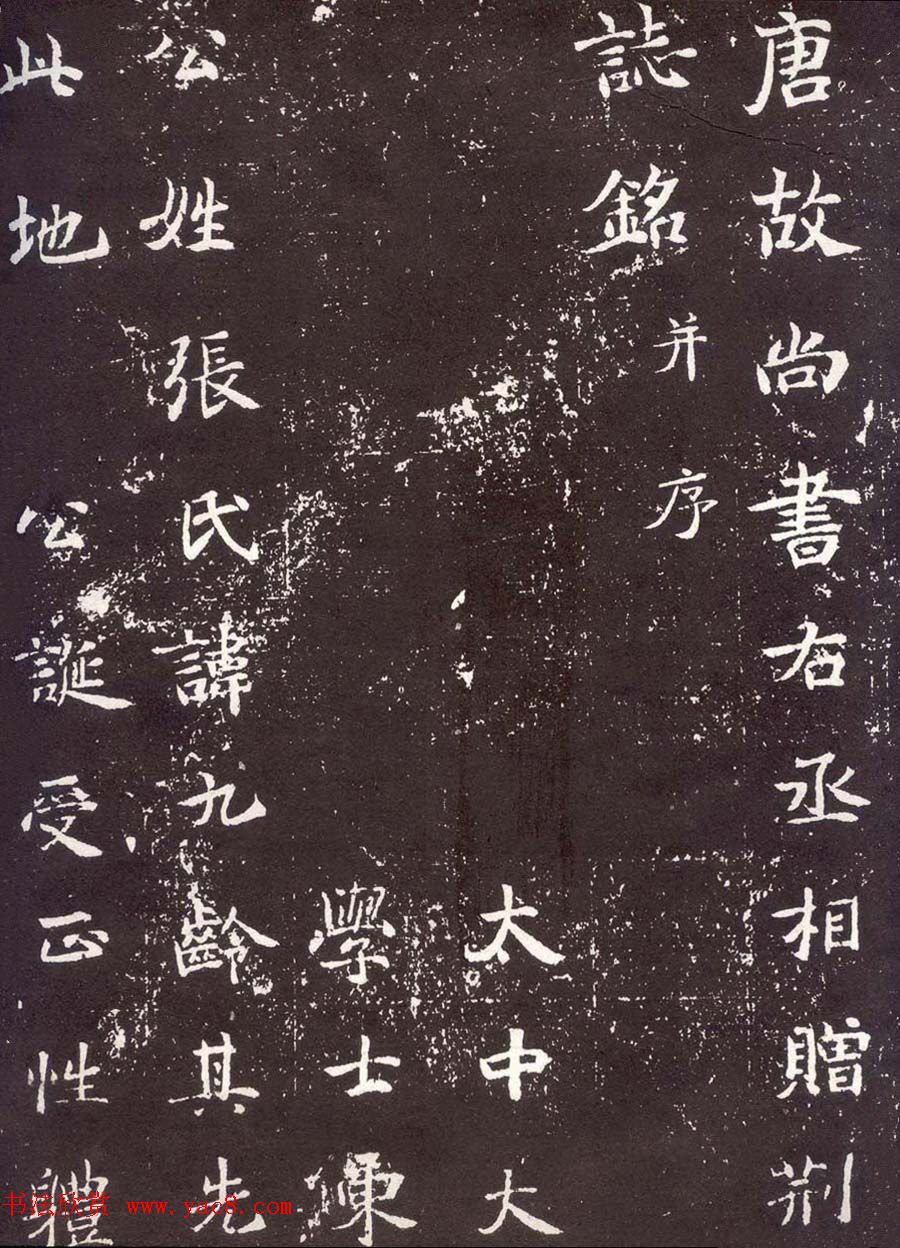 唐故尚書右丞相贈荊
誌銘并序
太中大
學士東
公姓張氏諱九齡其先
此地 公誕受正性體
书法欣赏 www.yac8.com